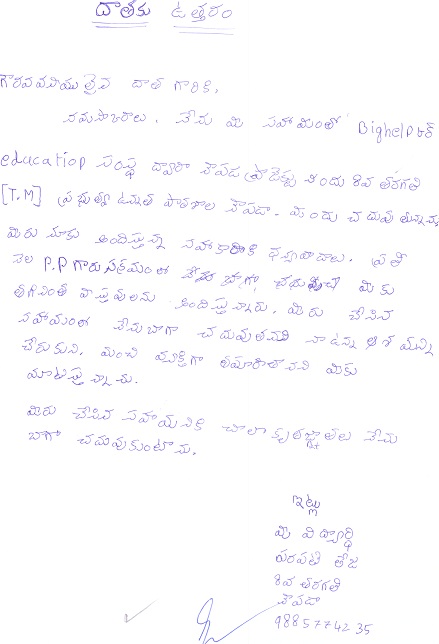 దాతకు ఉత్తరం
గౌరవనీయులైన దాత గారికి,
నమస్కారాలు. నేను మీ సహాయంతో Bighelp ఫర్
education సంస్థ ద్వారా కొవడ ప్రాజెక్టు నందు 8వ తరగతి
[T.M] ప్రభుత్వ ఉన్నత పాఠశాల కొవడా. నందు చదువుతున్నాను
మీరు నాకు అందిస్తున్న సహకారానికి ధన్యవాదాలు. ప్రతి
నెల P.P గారు సక్రమంలో బాగా మీకు
తగినంత వస్తువులను అందిస్తున్నారు. మీరు చేసిన
సహాయంతో నేను బాగా చదువుతానని నా ఉన్న ఆశ
చేరుకుని, మంచి వ్యక్తిగా తయారౌతానని మీకు
మాటిస్తున్నాను.
మీరు చేసిన సహాయానికి చాలా కృతజ్ఞతలు నేను
బాగా చదువుకుంటాను.
ఇట్లు
మీ విద్యార్థి
తేజ
8వ తరగతి
కొవడా
9885774235